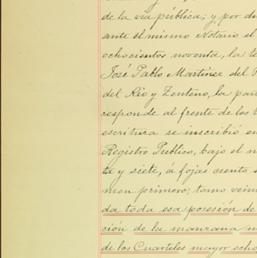 de la via pública; y por di
ante el mismo Notario el
ochocientos noventa, la te
José Pablo Martinez del R
del Rio y Zenteno, la par
responde al frente de los t
escritura se inscribió en
Registro Publico, bajo el n
ta y siete, á fojas ciento s
men primero; tomo vein
da toda esa posesión de
ción de la manzana n
de los Cuarteles mayor ocho